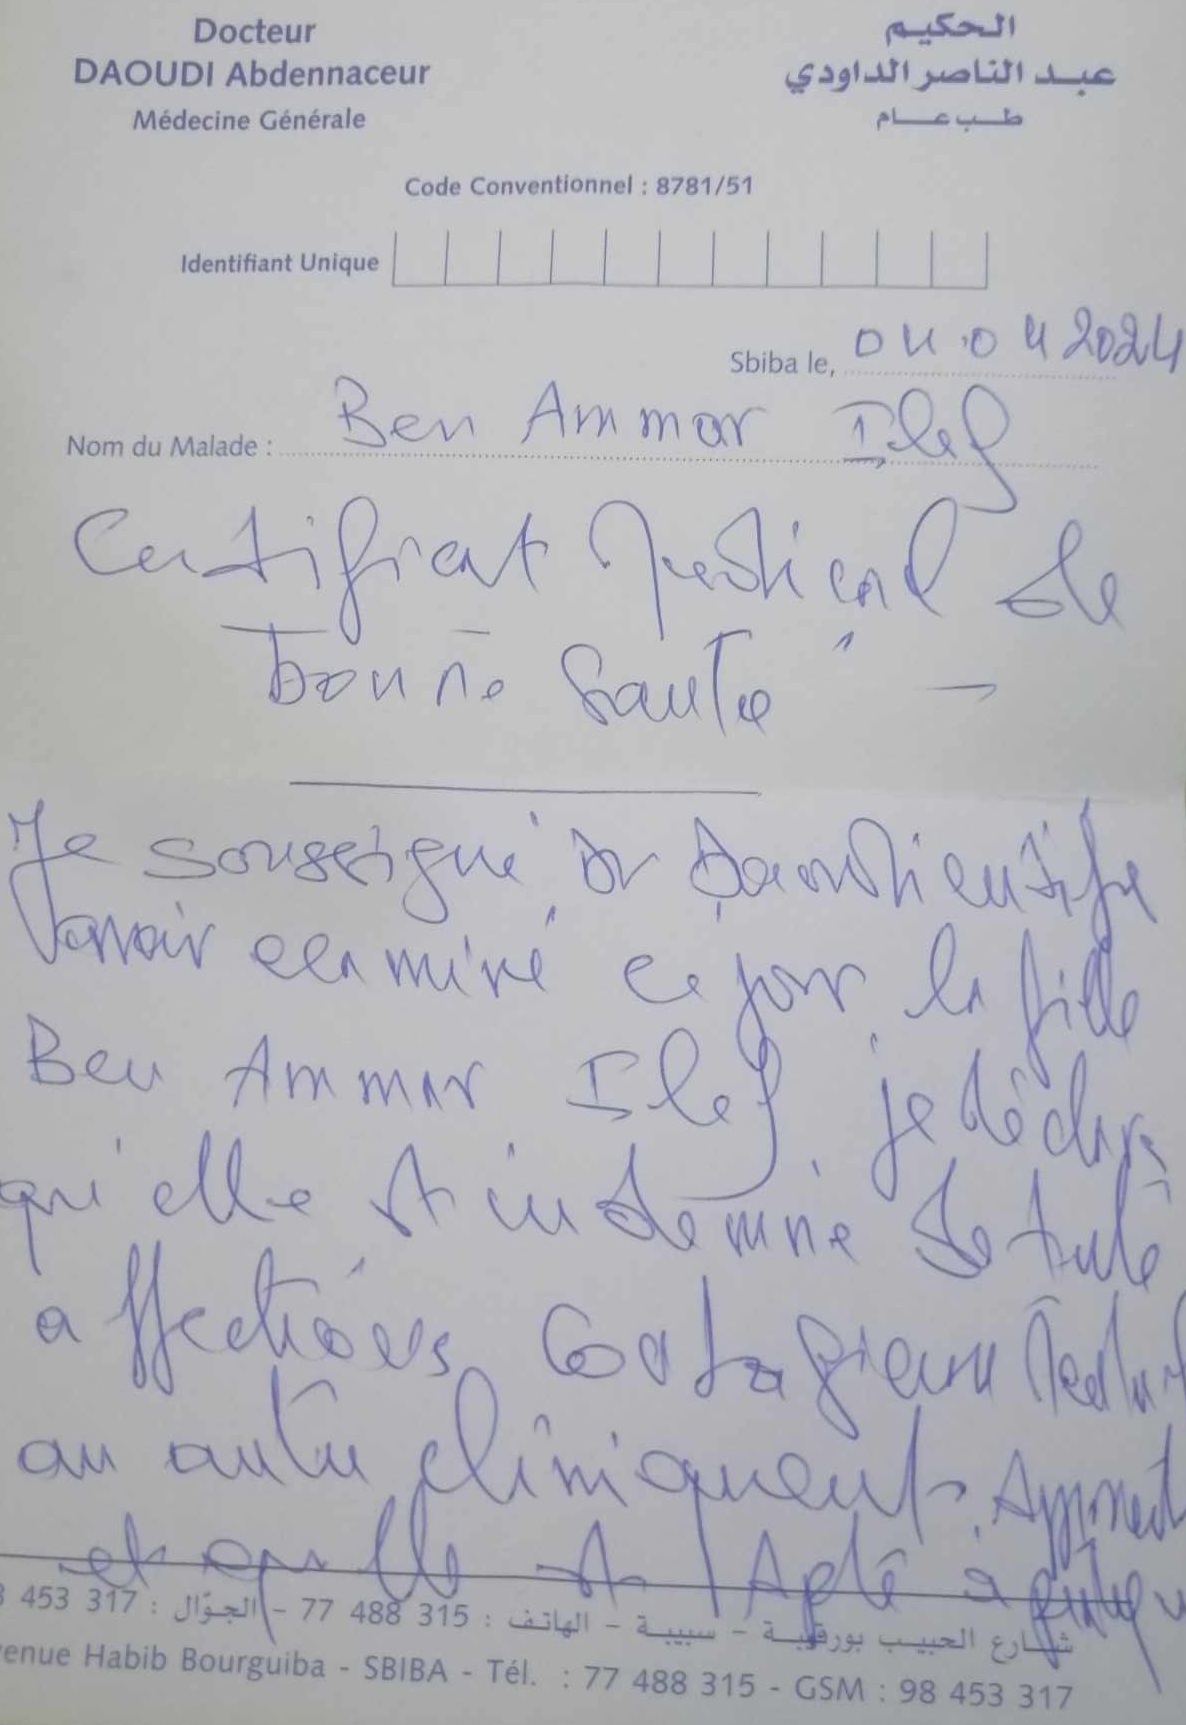 Docteur
DAOUDI Abdennaceur
Médecine Générale
الحكيم
عبد الناصر الداودي
طب عام
Code Conventionnel : 8781/51
Identifiant Unique
Sbiba le, 04.04 2024
Nom du Malade : Ben Ammar Ilef
Certificat Médical de
bonne Santé
Je soussigné Dr Daoudi certifie
avoir examiné ce jour la fille
Ben Ammar Ilef, je déclare
qu'elle est indemne de toute
affections contagieuse
ou autre cliniquent. Apparent
et qu'elle est Apte à
453 317 : شارع الحبيب بورقيبة – سبيبة – الهاتف : 315 488 77 – الجوّال
enue Habib Bourguiba - SBIBA - Tél. : 77 488 315 - GSM : 98 453 317